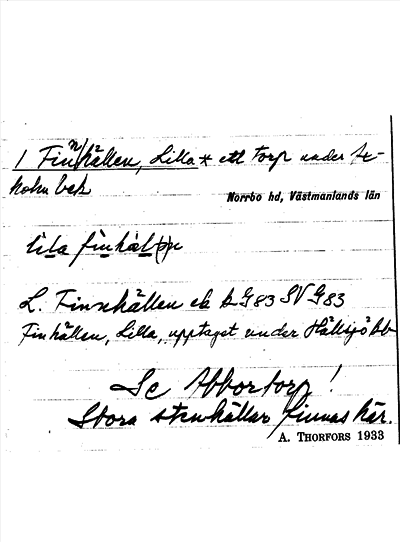 1 Fin(n)hällen, Lilla * ett torp under Ax-
holm bek
Norrbo hd, Västmanlands län
lila finhäl(ə)n
L. Finnhällen ek
Finhällen, Lilla, upptaget under Hällsjö bb
Se Abbortorp!
Stora stenhällar finnas här.
A. THORFORS 1933